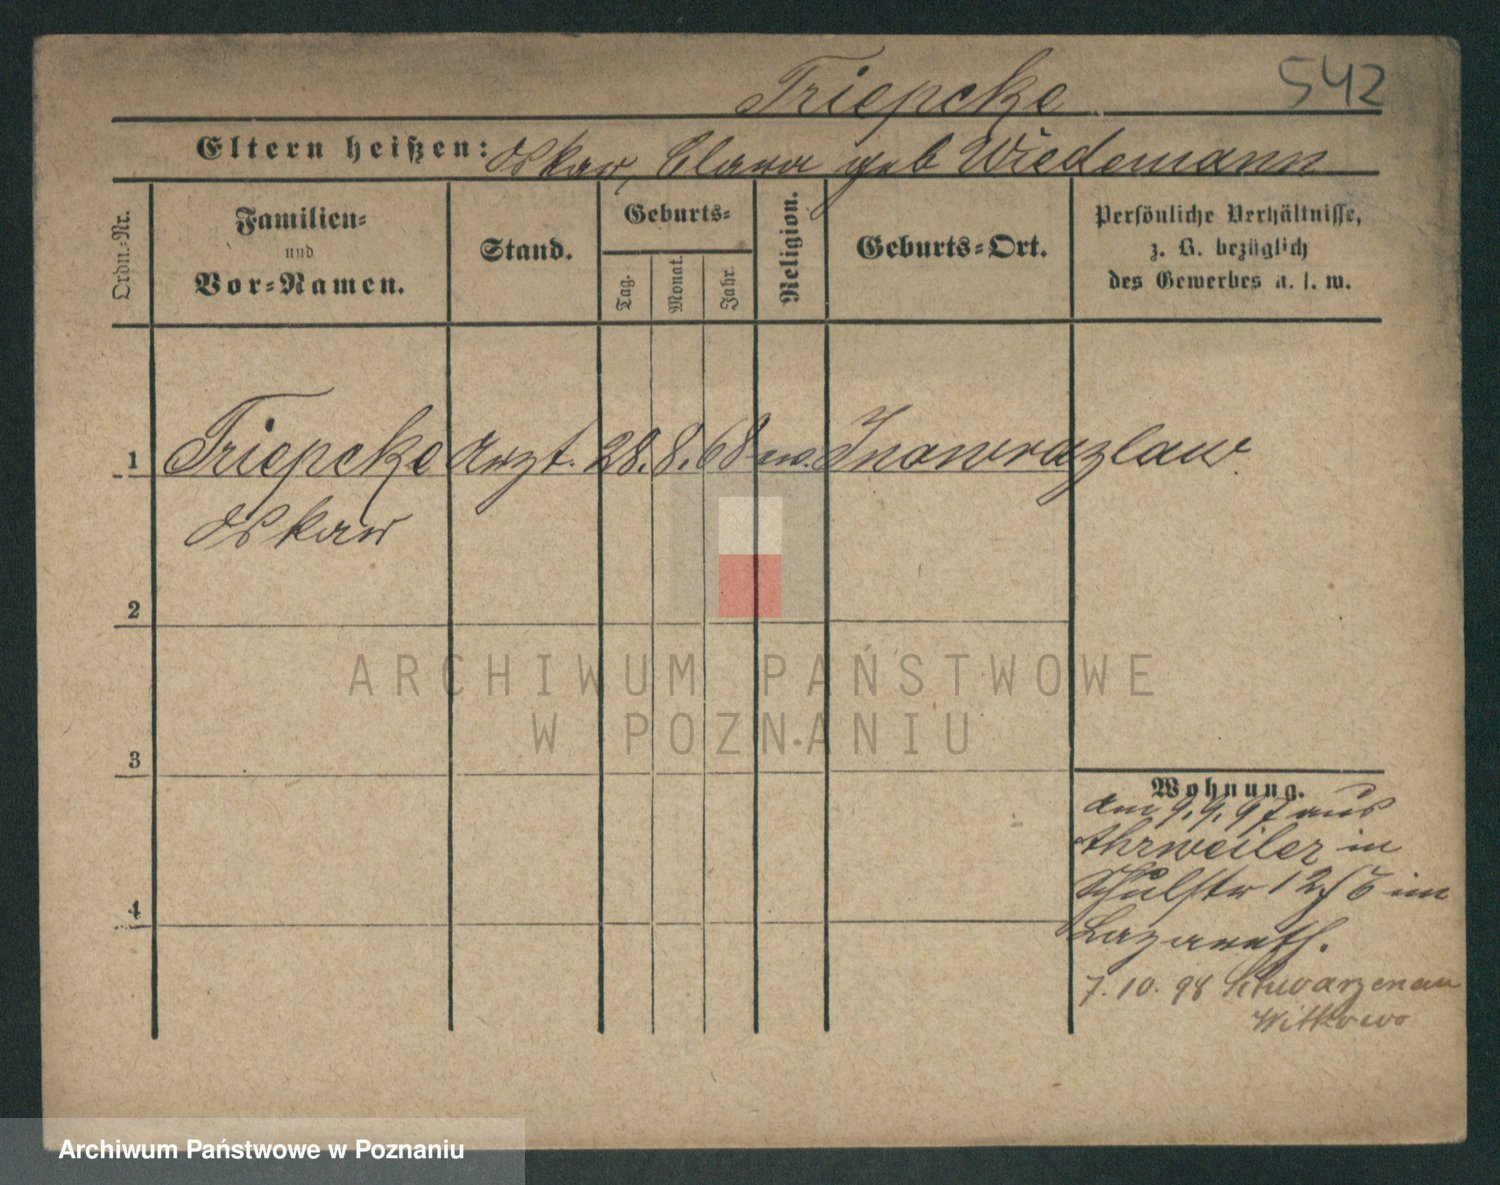 Triepcke 542
Eltern heißen: Oskar, Clara geb Wiedemann
Ordn.-Nr.
Familien-
und
Vor-Namen.
Stand.
Geburts-
Tag.
Monat.
Jahr.
Religion.
Geburts-Ort.
Persönliche Verhältnisse,
z. B. bezüglich
des Gewerbes u. s. w.
1 Triepcke Arzt. 28. 8. 68 ev. Inowrazlaw.
Oskar
2
3
4
Wohnung.
am 9. 9. 97 aus
Ahrweiler in
Schulstr 12/ im
Lazareth.
7. 10. 98 Schwarzenau
Witkowo
ARCHIWUM PAŃSTWOWE
W POZNANIU
Archiwum Państwowe w Poznaniu